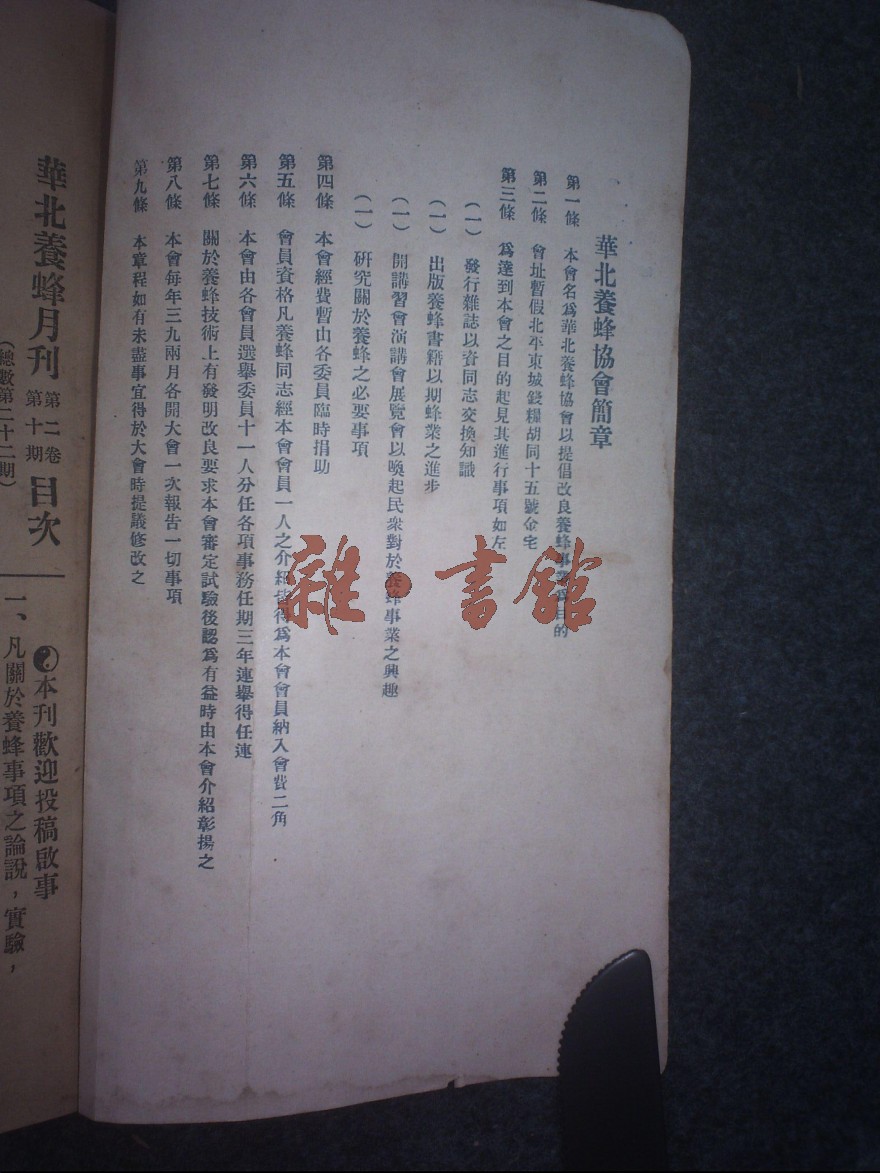 華北養蜂協會簡章
第一條 本會名爲華北養蜂協會以提倡改良養蜂事業爲目的
第二條 會址暫假北平東城錢糧胡同十五號金宅
第三條 爲達到本會之目的起見其進行事項如左
（一） 發行雜誌以資同志交換知識
（一） 出版養蜂書籍以期蜂業之進步
（一） 開講習會演講會展覽會以喚起民衆對於養蜂事業之興趣
（一） 研究關於養蜂之必要事項
第四條 本會經費暫由各委員臨時捐助
第五條 會員資格凡養蜂同志經本會會員一人之介紹皆得爲本會會員納入會費二角
第六條 本會由各會員選舉委員十一人分任各項事務任期三年連舉得任連
第七條 關於養蜂技術上有發明改良要求本會審定試驗後認爲有益時由本會介紹彰揚之
第八條 本會每年三九兩月各開大會一次報告一切事項
第九條 本章程如有未盡事宜得於大會時提議修改之
雜·書館
華北養蜂月刊 第二卷 第十期 目次
（總數第二十二期）
本刊歡迎投稿啟事
一、凡關於養蜂事項之論說，實驗，